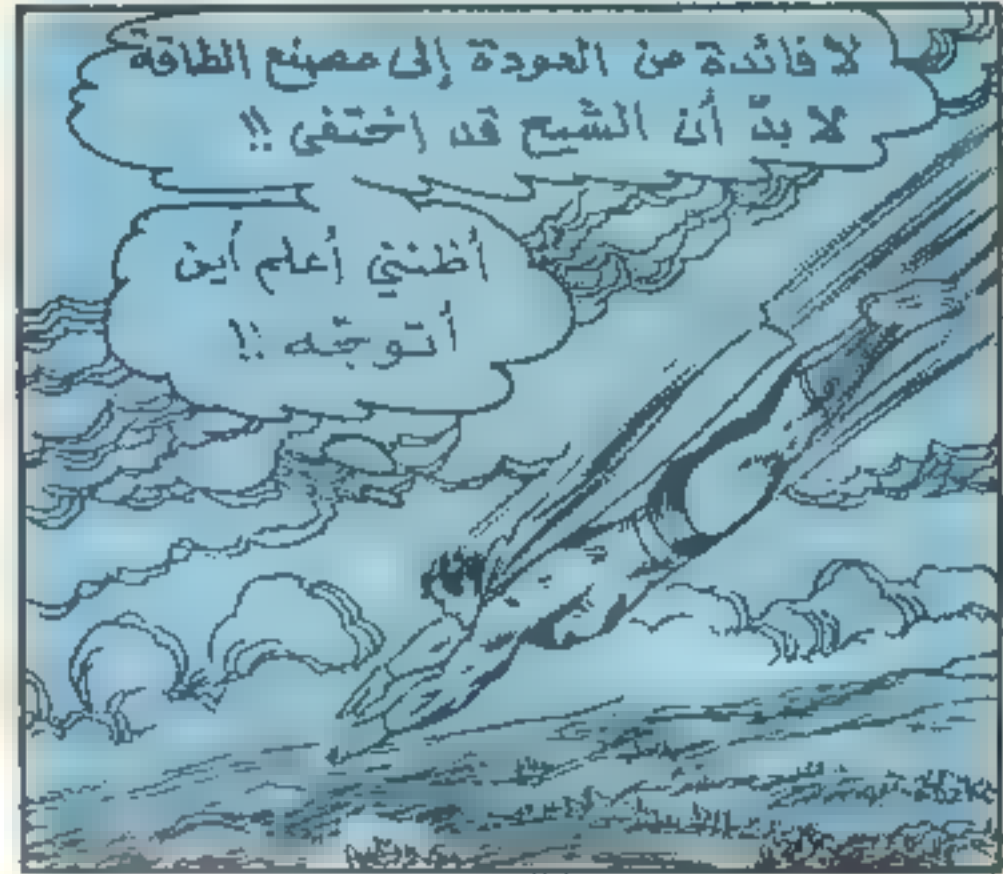 لا فائدة من العودة إلى مصنع الطاقة
لا بدّ أن الشبح قد اختفى !!
أظنني أعلم أين
أتوجّه !!